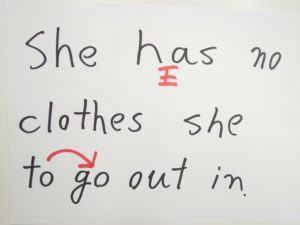 She has no
I
clothes she
to go out in.